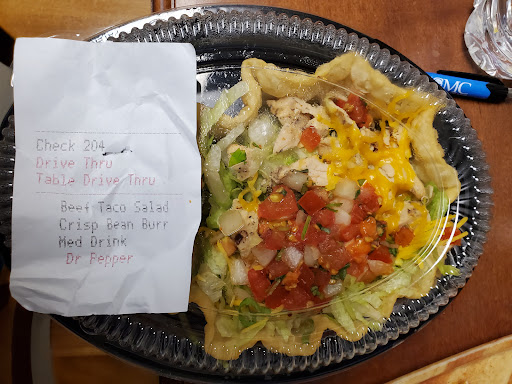 Check 204
Drive Thru
Table Drive Thru
Beef Taco Salad
Crisp Bean Burr
Med Drink
Dr Pepper
MC